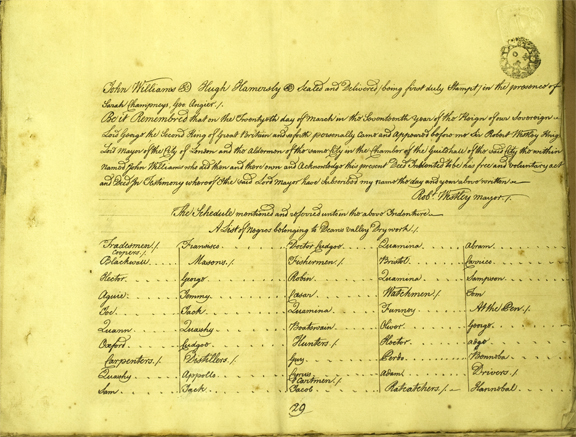 John Williams Hugh Hamersly Sealed and Delivered (being first duly Stampt) in the presence of
Sarah Champneys, Geo. Angier /.
Be it Remembred that on the Twentysixth day of March in the Seventeenth year of the Reign of our Sovereign
Lord George the Second King of Great Britain and so forth personally Came and appeared before me Sir Robert Westley
Lord Mayor of the City of London and the Aldermen of the same City in the Chamber of the Guildhall of the said City the within
named John Williams who did then and there own and Acknowledge this present Deed Indented to be his free and voluntary act
and Deed In Testimony whereof I the said Lord Mayor have Subscribed my name the day and year above written
Robt. Westley mayor /.
The Schedule mentioned and referred unto in the above Indenture
A List of Negroes belonging to Deans Valley Drywork /.
Tradesmen /. Francisco Doctor Cudjoe Quamina Abram
Coopers /.
Blackwall Masons /. Fishermen /. Bristol
Hector George Robin Quamina Sampson
Tommy Cæsar Watchmen /. Tom
Joe Jack Quamina At the Pen /.
Quaw Quashy Boatswain Oliver George
Oxford Cudjoe Hunters /. Hector
Carpenters /. Distillers /. Guy Benneba
Quashy Appollo Cyrus Adam Drivers /.
Cartmen /.
Sam Jack Jacob Ratcatchers /. Hannibal
29